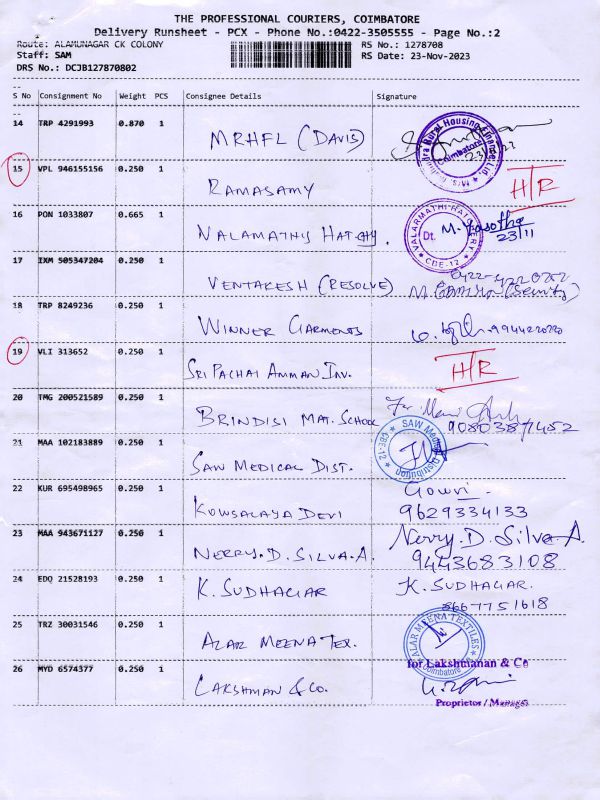 THE PROFESSIONAL COURIERS, COIMBATORE
Delivery Runsheet - PCX - Phone No.:0422-3505555 - Page No.:2
Route: ALAMUNAGAR CK COLONY RS No.: 1278708
Staff: SAM RS Date: 23-Nov-2023
DRS No.: DCJB127870802
S No Consignment No Weight PCS Consignee Details Signature
14 TRP 4291993 0.870 1 MRHFL (DAVIS)
15 VPL 946155156 0.250 1 RAMASAMY H/R
16 PON 1033807 0.665 1 VALAMATHY HATCHY. Dt. M. Yasotha 23/11
CBE-12
17 IXM 505347204 0.250 1 VENTAKESH (RESOLVE)
18 TRP 8249236 0.250 1 WINNER GARMENTS
19 VLI 313652 0.250 1 SRI PACHAI AMMAN INV. H/R
20 TMG 200521589 0.250 1 BRINDISI MAT. SCHOOL For
21 MAA 102183889 0.250 1 SAW MEDICAL DIST. SAW Medical Distribution CBE-12
22 KUR 695498965 0.250 1 KOWSALAYA DEVI Gowri
9629334133
23 MAA 943671127 0.250 1 NERRY.D.SILVA.A. Nerry.D.Silva.A.
9443683108
24 EDQ 21528193 0.250 1 K.SUDHAGAR K.SUDHAGAR.
8667751618
25 TRZ 30031546 0.250 1 ALAR MEENA TEX. ALAR MEENA TEXTILES Coimbatore
26 MYD 6574377 0.250 1 LAKSHMAN & CO. for Lakshmanan & Co
Proprietor / Manager